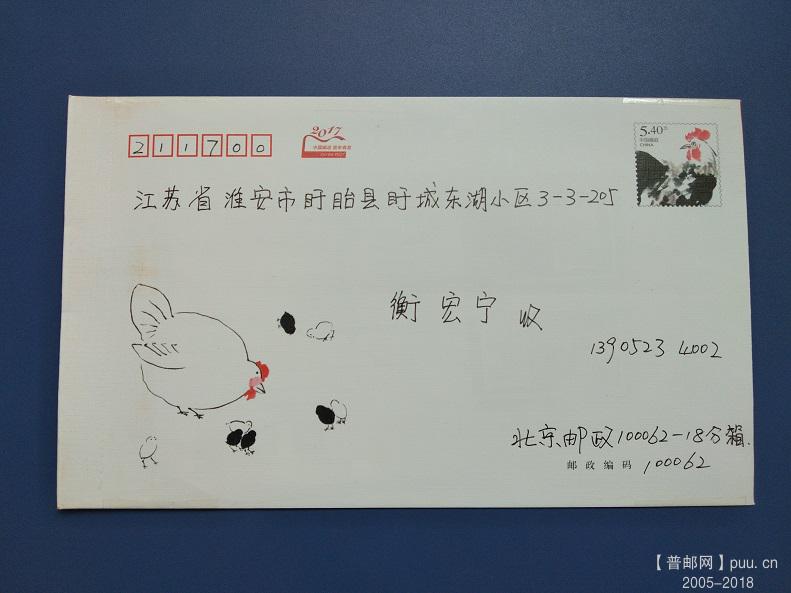 211700
2017
中国邮政 贺年有奖
CHINA POST
5.40元
中国邮政
CHINA
江苏省淮安市盱眙县盱城东湖小区3-3-205
衡宏宁 收
1390523 4002
北京邮政100062-18分箱.
邮政编码 100062
【普邮网】puu.cn
2005-2018